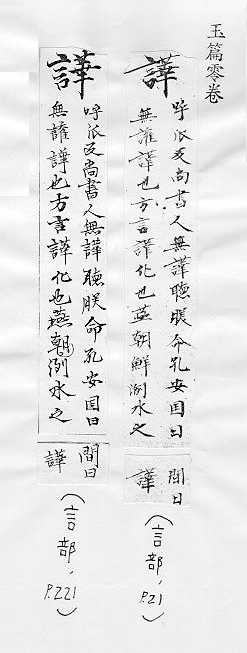 玉篇零卷
譁
呼泒反尚書人無譁聽朕命孔安国曰
無讙譁也方言譁化也燕朝鮮洌水之
間曰
譁
(言部, P.21)
譁
呼泒反尚書人無譁聽朕命孔安国曰
無讙譁也方言譁化也燕朝洌水之
間曰
譁
(言部, P.221)